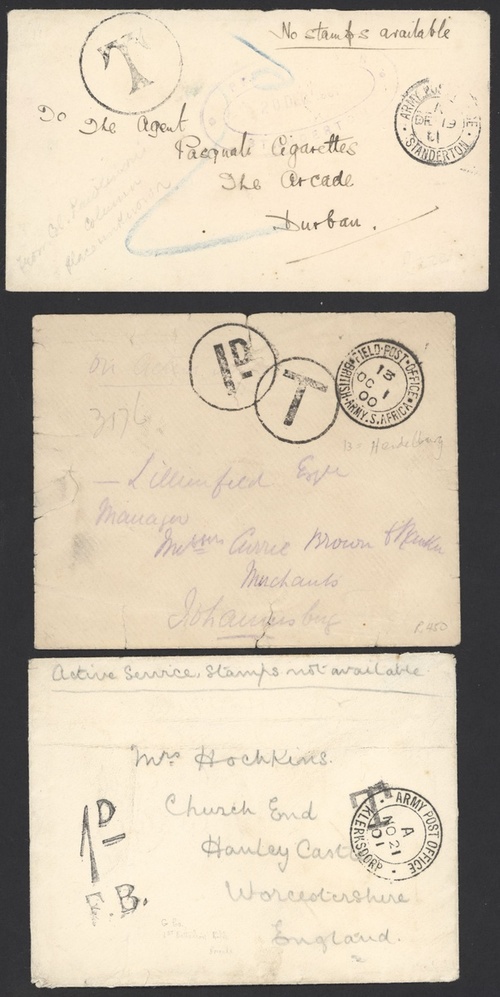 No stamps available
T
ARMY
DE 19
01
STANDERTON
To The Agent
Pasquali Cigarettes
The Arcade
Durban.
1D.
T
BRITISH·FIELD·POST·OFFICE·ARMY·S.AFRICA
13
OC 1
00
13 = Heidelberg
3176
— Lilienfeld Esqre
Manager
Messrs Currie Brown &
Merchants
Johannesburg
P.450
Active Service, Stamps not available
Mrs Hochkins.
T
ARMY POST OFFICE
A
NO 21
01
KLERKSDORP
Church End
1D
Hanley Castle
I.B.
Worcestershire
England.